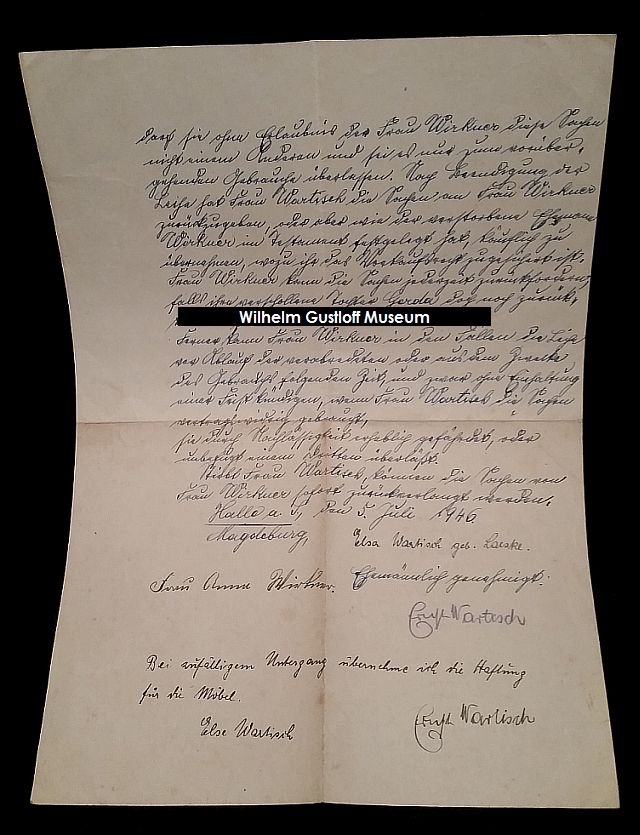 darf sie ohne Erlaubnis der Frau Wirkner diese Sachen
nicht einem Anderen und sei es nur zum vorüber-
gehenden Gebrauche überlassen. Nach Beendigung der
Leihe hat Frau Wartisch die Sachen an Frau Wirkner
zurückzugeben, oder aber wie der verstorbene Ehemann
Wirkner im Testament festgelegt hat, käuflich zu
übernehmen, wozu ihr das Vorkaufsrecht zugesichert ist.
Frau Wirkner kann die Sachen jederzeit zurückfordern,
falls ihre verschollene Tochter Gerda doch noch zurück-
Wilhelm Gustloff Museum
Ferner kann Frau Wirkner in den Fällen die Leihe
vor Ablauf der verabredeten oder aus dem Zwecke
des Gebrauchs folgenden Zeit, und zwar ohne Einhaltung
einer Frist kündigen, wenn Frau Wartisch die Sachen
vertragswidrig gebraucht,
sie durch Nachlässigkeit erheblich gefährdet, oder
unbefugt einem Dritten überläßt.
Stirbt Frau Wartisch, können die Sachen von
Frau Wirkner sofort zurückverlangt werden.
Halle a. S., den 5. Juli 1946
Magdeburg,
Elsa Wartisch geb. Laeske.
Frau Anna Wirkner. Ehemännlich genehmigt:
Ernst Wartisch
Bei zufälligem Untergang übernehme ich die Haftung
für die Möbel.
Else Wartisch
Ernst Wartisch